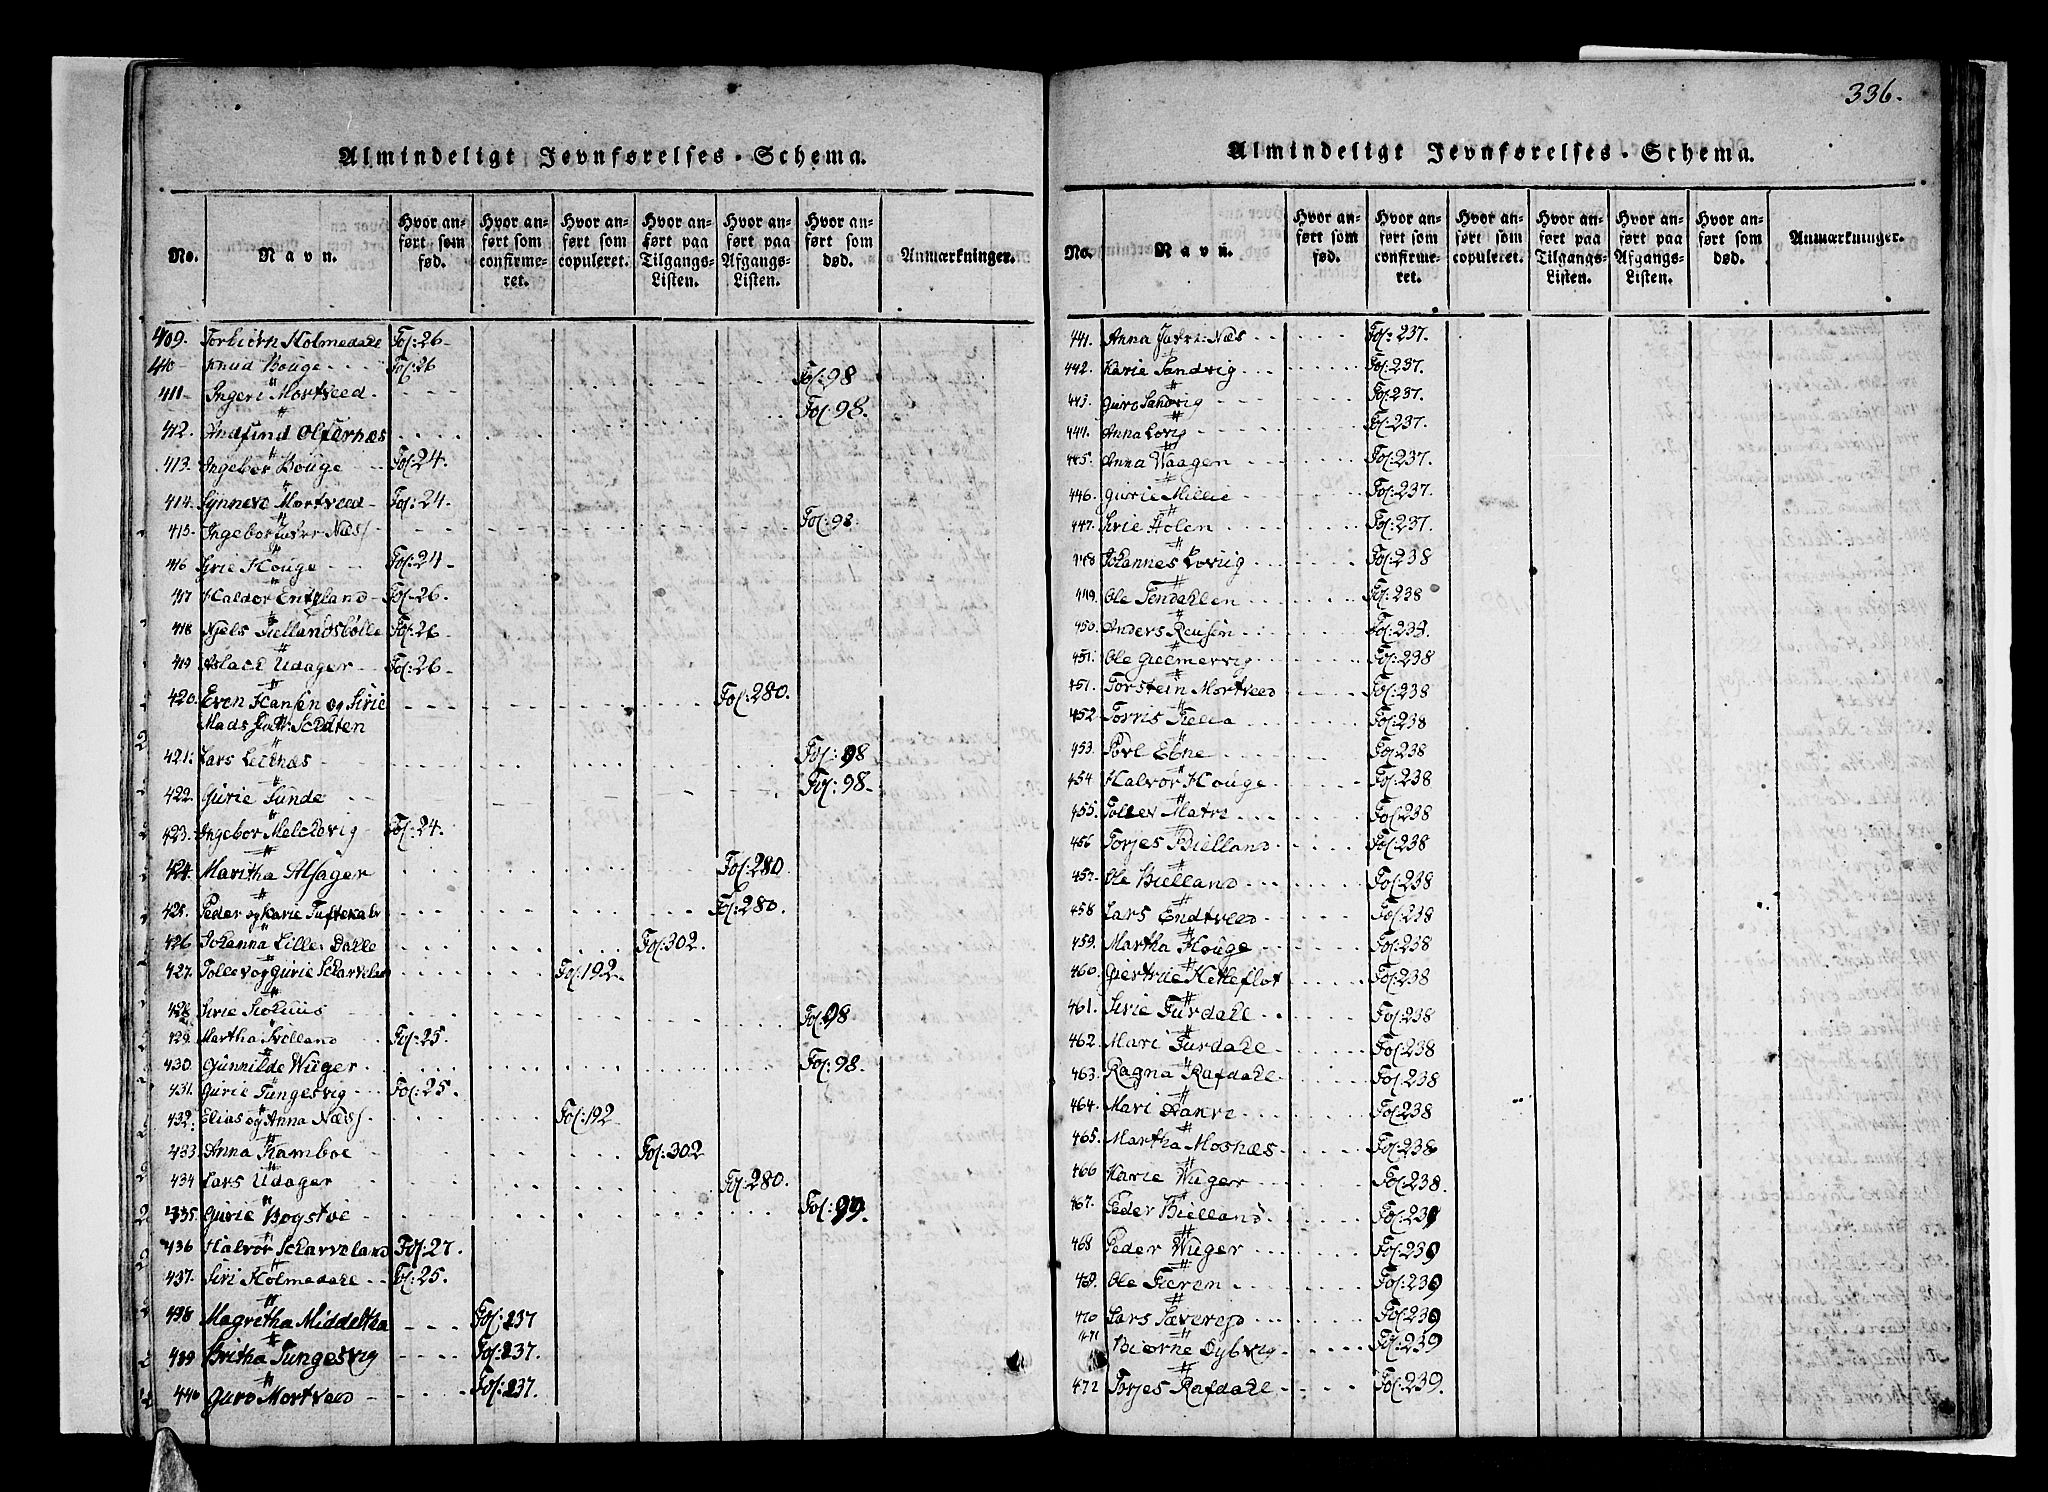 336.
Almindeligt Jevnførelses-Schema.
No. Navn. Hvor anført som fød. Hvor anført som confirmeret. Hvor anført som copuleret. Hvor anført paa Tilgangs-Listen. Hvor anført paa Afgangs-Listen. Hvor anført som død. Anmærkninger.
409. Torbiörn Holmedahl Fol: 26
Knud Houge Fol: 26
411 Ingeri Mortveed Fol: 98
412. Fol: 98.
413. Ingebor Houge Fol: 24.
414. Synneve Mortveed Fol: 24.
415. Ingebor Næs Fol: 98.
416 Sirie Houge Fol: 24
417 Haldor Fol: 26.
418 Njels Fol: 26
419 Aslach Udager Fol: 26
420. Even Hansen og Sirie Fol: 280.
Mads
421: Lars Fol: 98
422. Gurie Sunde Fol: 98
423. Ingebor Fol: 24.
424. Maritha Alsager Fol: 280
425. Peder og Karie Fol: 280.
426 Johanna Lille Dahle Fol: 302.
427. Tollev og Gurie Fol: 192
428. Sirie Fol: 98
429. Martha Fol: 25.
430. Gunnilde Wuger Fol: 98.
431. Gurie Tungesvig Fol: 25.
432. Elias og Anna Næs Fol: 192
433. Anna Kamboe Fol: 302
434 Lars Udager Fol: 280.
435. Gurie Bogstøe Fol: 99.
436 Halvor Fol: 27.
437. Siri Holmedahl Fol: 25.
438 Magretha Fol: 237
439 Britha Tungesvig Fol: 237.
440 Guro Mortveed Fol: 237.
Almindeligt Jevnførelses-Schema.
No. Navn. Hvor anført som fød. Hvor anført som confirmeret. Hvor anført som copuleret. Hvor anført paa Tilgangs-Listen. Hvor anført paa Afgangs-Listen. Hvor anført som død. Anmærkninger.
441. Anna Næs Fol: 237.
442. Karie Sandvig Fol: 237.
443. Guro Sandvig Fol: 237.
444. Anna Lovig Fol: 237.
445. Anna Waagen Fol: 237.
446. Gurie Millie Fol: 237.
447. Sirie Holen Fol: 237.
448 Johannes Lovig Fol: 238
449. Ole Fol: 238
450. Anders Fol: 238.
451. Ole Fol: 238
451. Torstein Mortveed Fol: 238
452 Torris Fol: 238
453. Povl Ebne Fol: 238
454 Halvor Houge Fol: 238
455. Tollev Matre Fol: 238
456 Torjes Bielland Fol: 238
457. Ole Bielland Fol: 238
458 Lars Endtveed Fol: 238
459. Martha Houge Fol: 238
460. Giertrue Fol: 238
461. Sirie Furdahl Fol: 238
462. Mari Furdahl Fol: 238
463. Ragna Rafdahl Fol: 238
464. Mari Fol: 238
465. Martha Mosnæs Fol: 238
466 Karie Wuger Fol: 238.
467. Peder Bielland Fol: 239
468 Peder Wuger Fol: 239
469. Ole Fol: 239
470 Lars Fol: 239
471 Biørne Dybvig Fol: 239
472 Torjes Rafdahl Fol: 239.